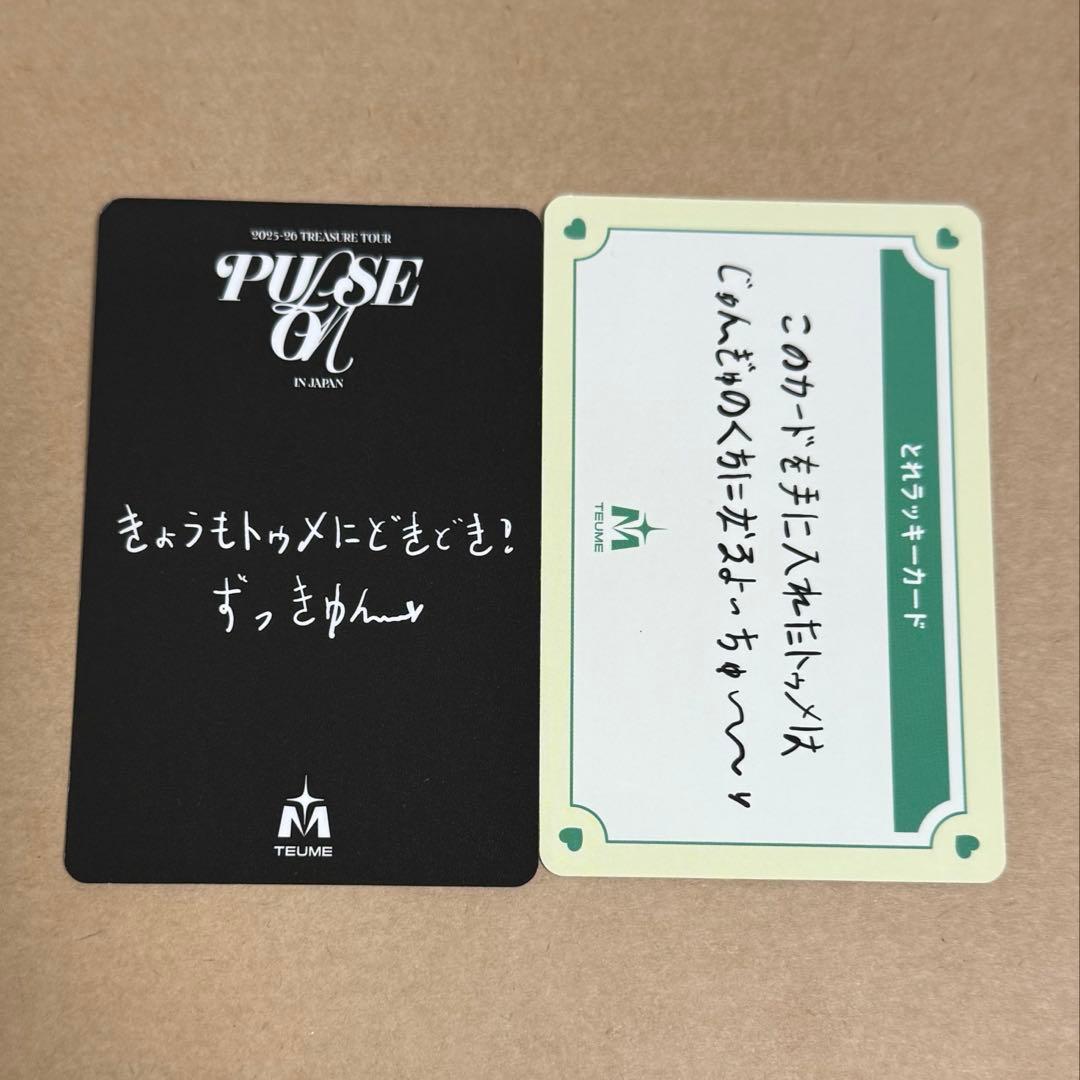 2025-26 TREASURE TOUR
PULSE
ON
IN JAPAN
きょうもトゥメにどきどき?
ずっきゅん
TEUME
とれラッキーカード
このカードを手に入れたトゥメは
じゅんぎゅのくちになるよーちゅ〜〜〜
TEUME